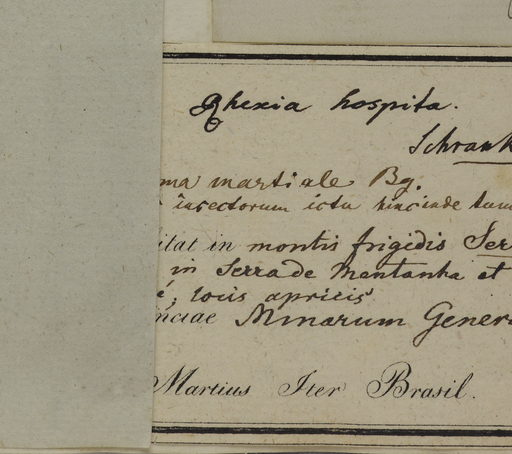 Rhexia hospita.
Schrank
ma martiale Bg.
insectorum ictu hincinde tum
itat in montis frigidis Ser
in Serra de Mantanha et
é, locis apricis
inciae Minarum Gener
Martius Iter Brasil.